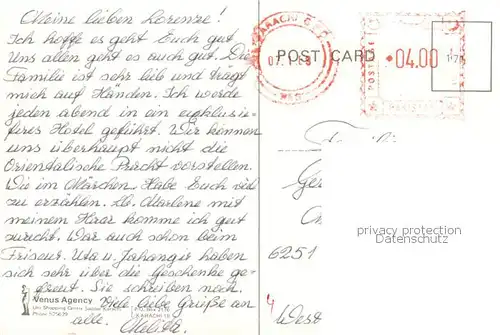 Meine lieben Lorenze!
Ich hoffe es geht Euch gut
Uns allen geht es auch gut. Die
Familie ist sehr lieb und trägt
mich auf Händen. Ich werde
jeden abend in ein exklusi-
feres Hotel geführt. Wir können
uns überhaupt nicht die
Orientalische Pracht vorstellen.
Wie im Märchen. Habe Euch viel
zu erzählen. Lb. Marlene mit
meinem Haar komme ich gut
zurecht. War auch schon beim
Friseur. Uta u. Jahangir haben
sich sehr über die Geschenke ge-
freut. Sie schreiben noch.
Viele liebe Grüße an
alle.
Venus Agency
KARACHI
POST CARD
KARACHI G.P.O.
POSTAGE
04.00
PAKISTAN
6251
West
privacy protection
Datenschutz